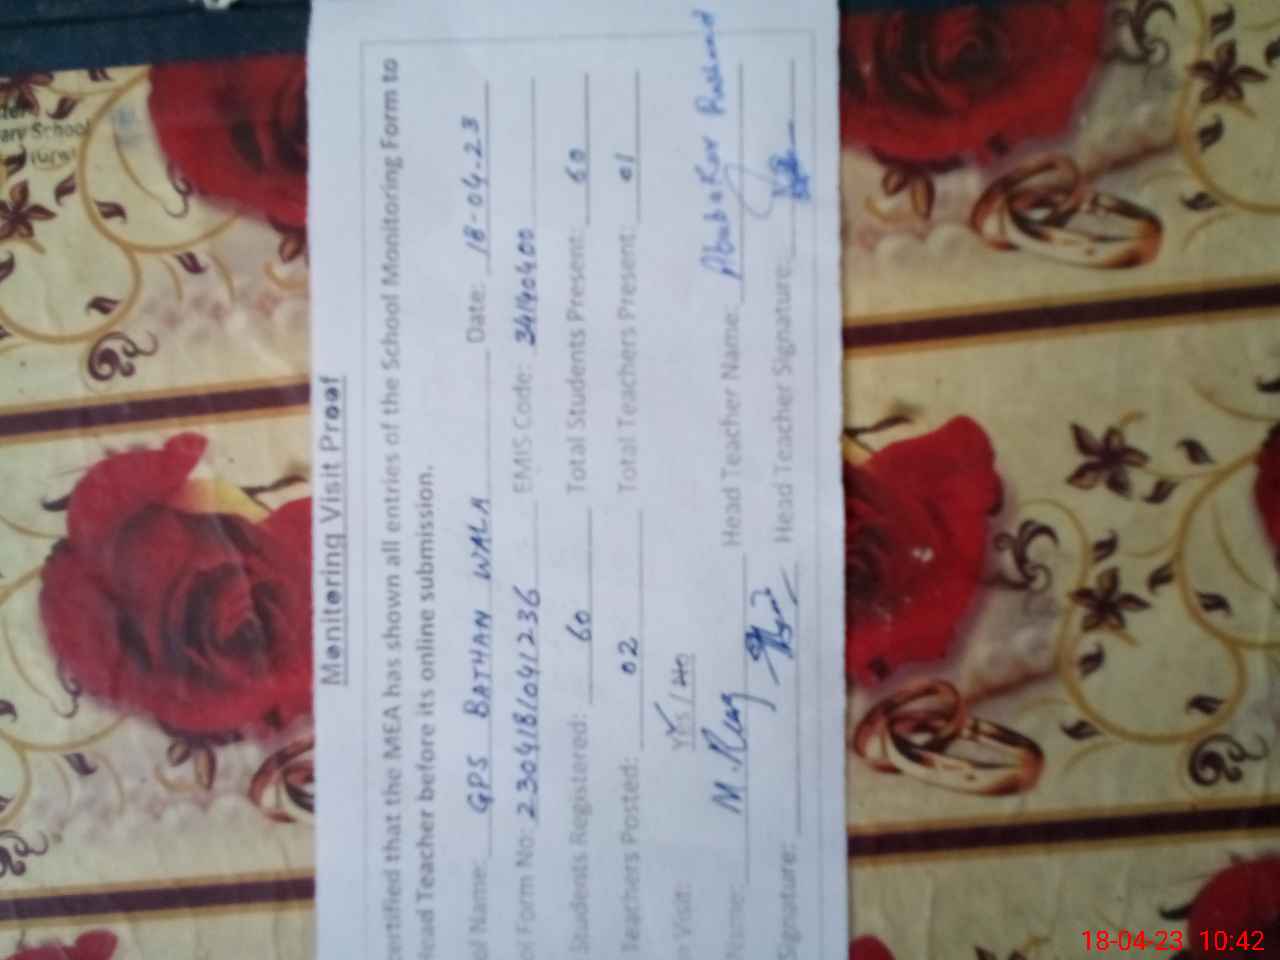 Monitoring Visit Proof
ertified that the MEA has shown all entries of the School Monitoring Form to
ead Teacher before its online submission.
ol Name: GPS BATHAN WALA Date: 18-04-23
l Form No: 2304181041236 EMIS Code: 34140400
Students Registered: 60 Total Students Present: 60
Teachers Posted: 02 Total Teachers Present: 01
Visit: Yes / No
Name: M. Head Teacher Name: Abubakar
Signature: Head Teacher Signature:
ary School
18-04-23 10:42